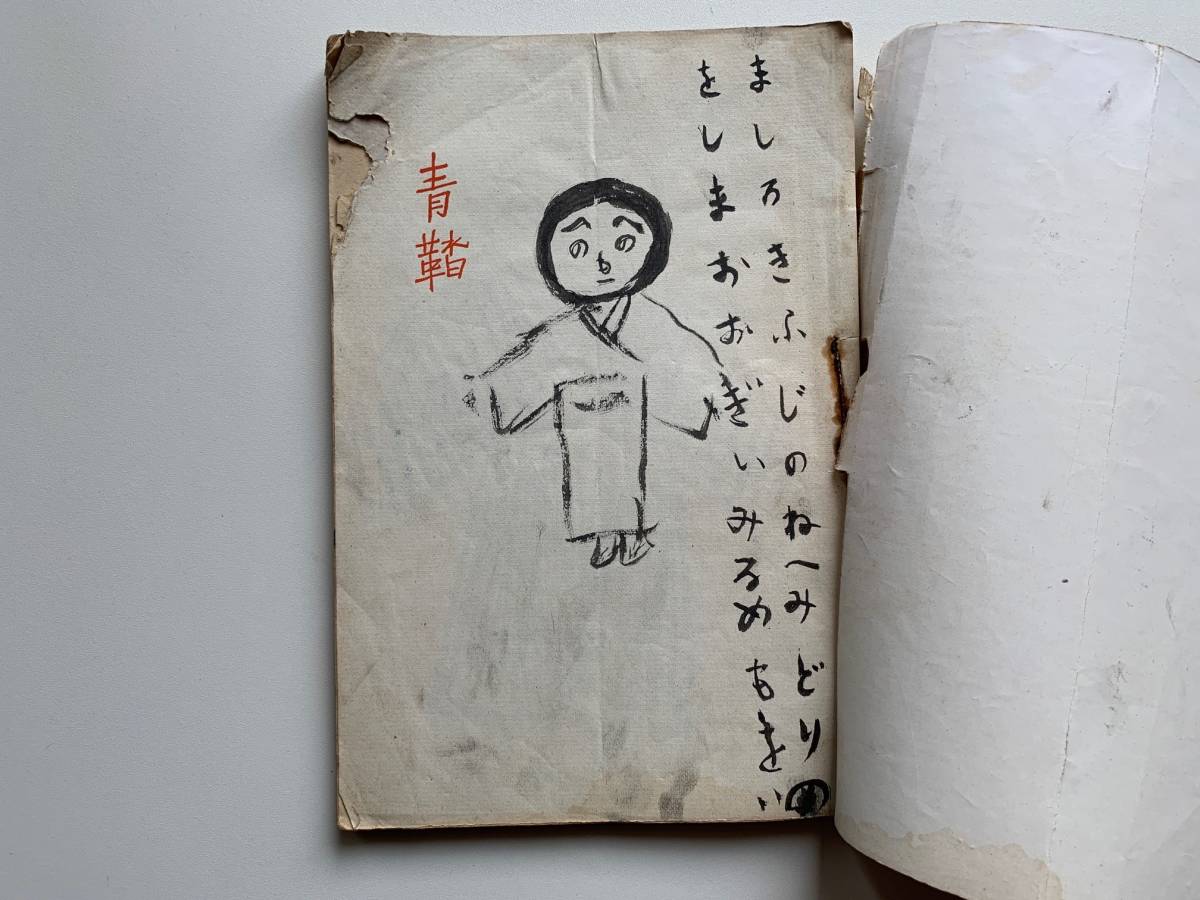 ましろきふじのねへみどりの
をしまおおぎいみるめもをい
青鞜